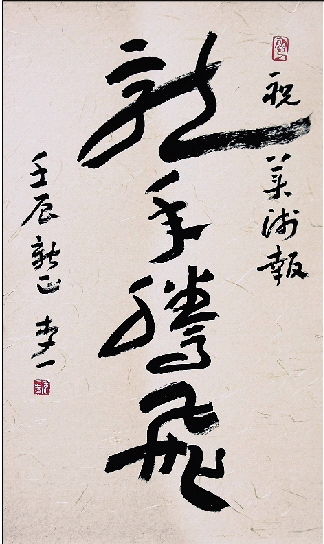 祝美術報
龍年騰飛
壬辰新正 李一